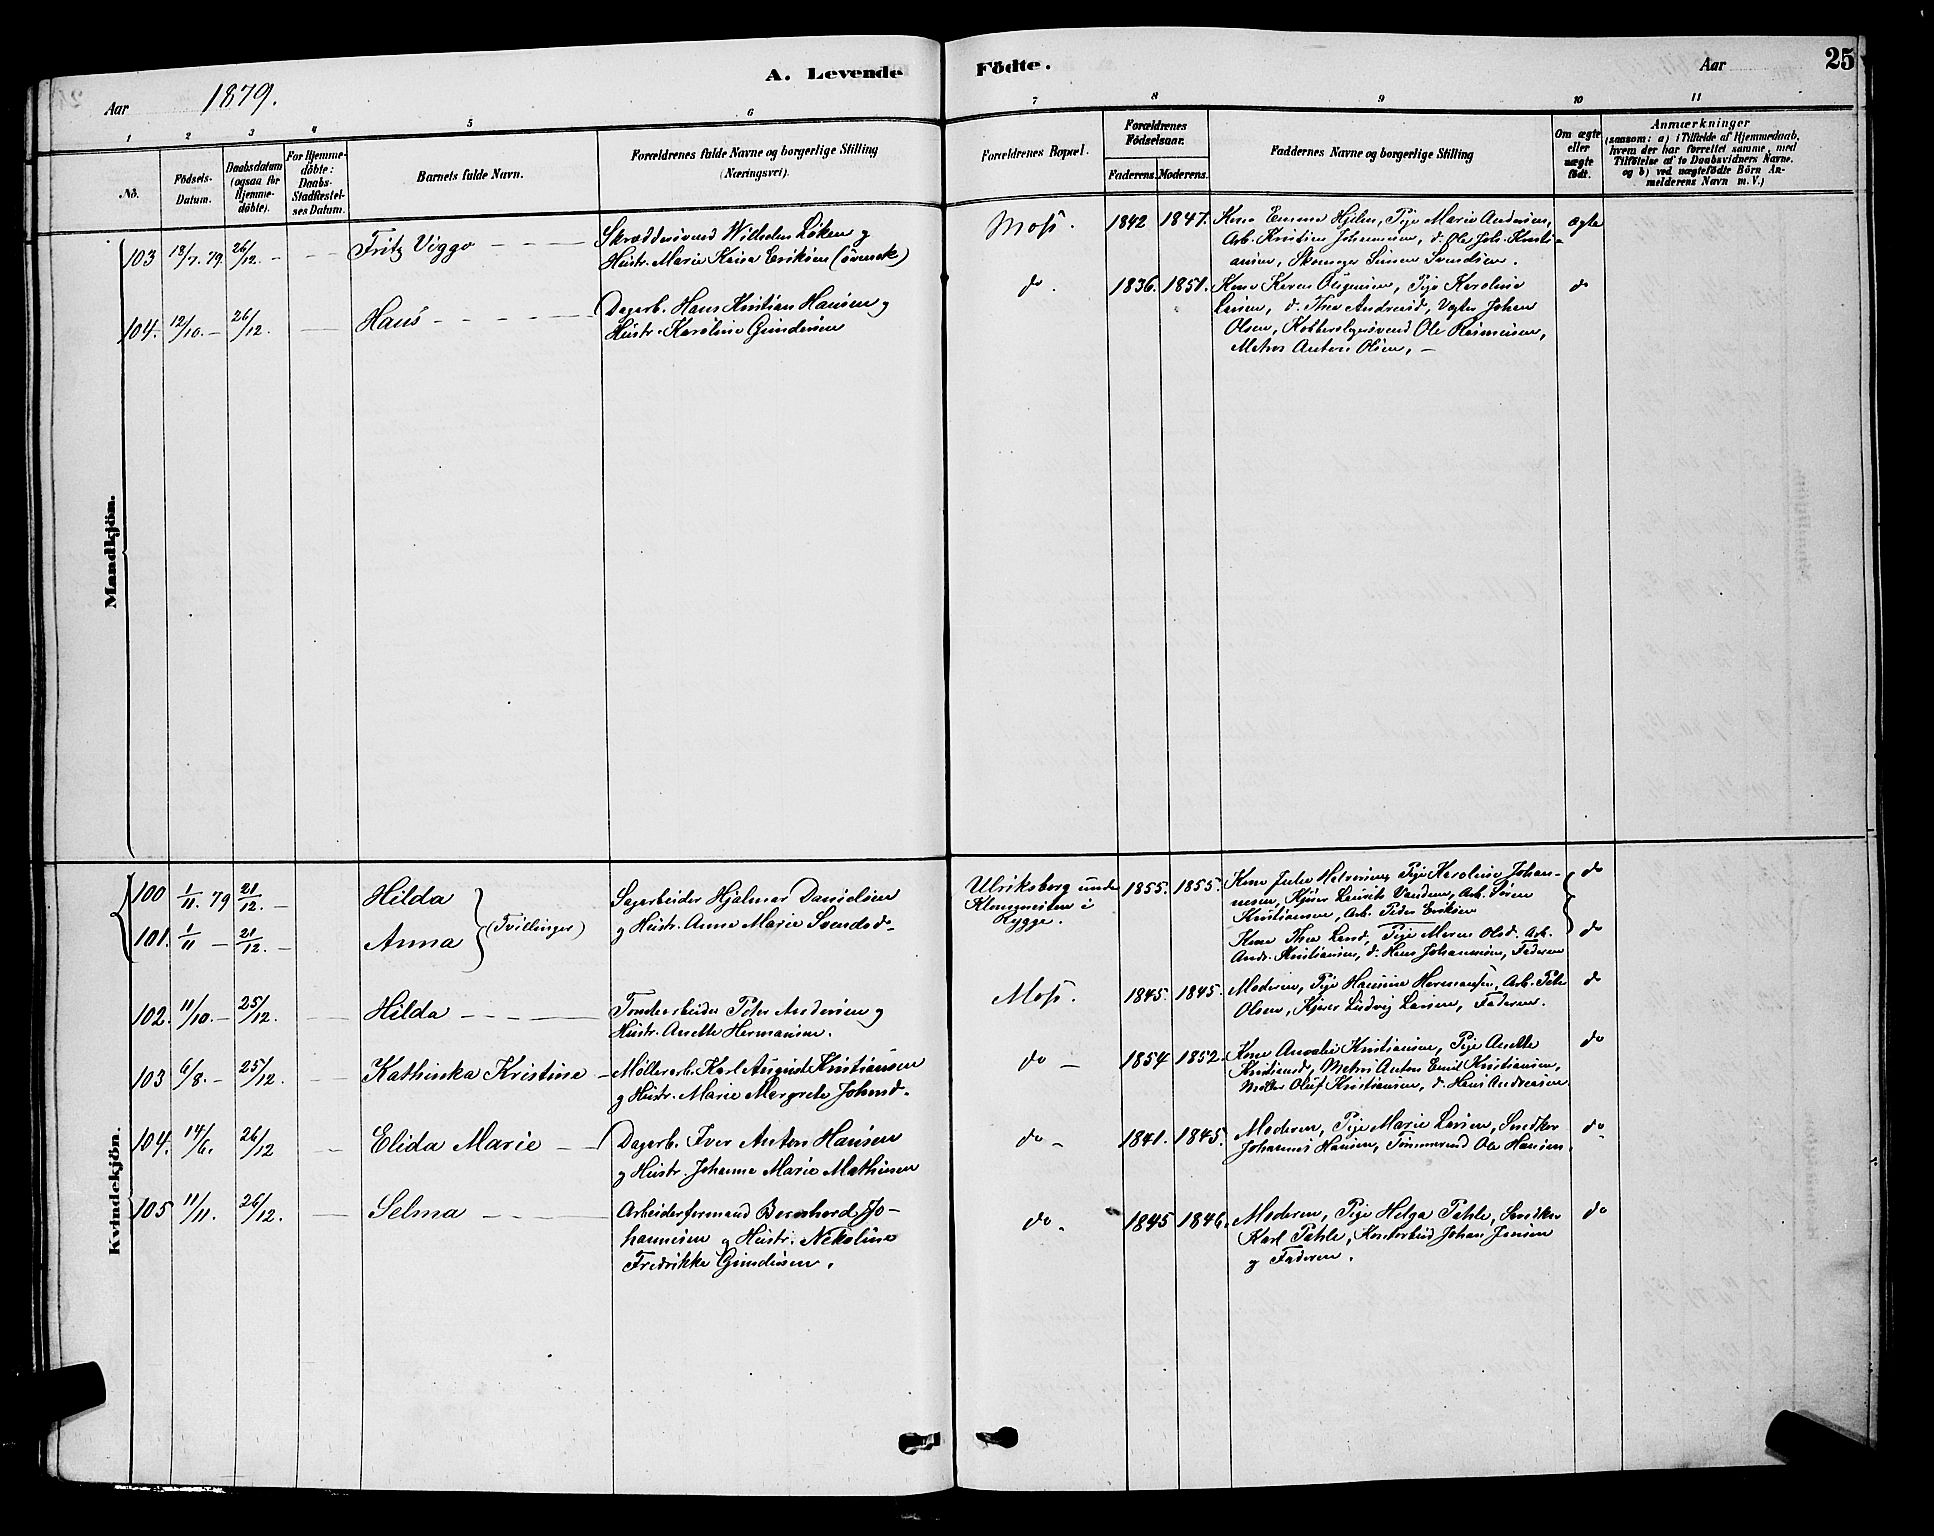 A. Levende Födte.
25
Aar 1879.
Aar
1 2 3 4 5 6 7 8 9 10 11
No.
Födsels-Datum.
Daabsdatum (ogsaa for Hjemme-döbte).
For Hjemme-döbte: Daabs-Stadfæstel-ses Datum.
Barnets fulde Navn.
Forældrenes fulde Navne og borgerlige Stilling (Næringsvei).
Forældrenes Bopæl.
Forældrenes Födselsaar.
Faderens. Moderens.
Faddernes Navne og borgerlige Stilling
Om ægte eller uægte födt.
Anmærkninger
(saasom: a) i Tilfælde af Hjemmedaab,
hvem der har forrettet samme, med
Tilföielse af to Daabsvidners Navne.
og b) ved uægtefödte Börn An-
melderens Navn m. V.)
Mandkjön.
103 12/7. 79. 26/12. - Fritz Viggo Skræddersvend Wilhelm Löken og
Hustr. Marie Kaisa Eriksen (svensk)
Moss. 1842 1847. Kone Emma Hjelm, Pige Marie Andersen,
Arb. Kristian Johannesen, d. Ole Joh. Kristi-
ansen, Skomager Simen Svendsen.
Ægte
104. 12/10. - 26/12. Hans Dagarb. Hans Kristian Hansen og
Hustr. Karoline Gundersen
do. 1836. 1851. Kone Karen Olsen, Pige Karoline
Larsen, d. Thea Andreasd, Vegter Johan
Olsen, Kobberslagersvend Ole Rasmussen,
Matros Anton Olsen, -
do
Kvindekjön.
100 1/11. 79 21/12. - Hilda
101. 1/11 - 21/12. - Anna
(Tvillinger)
Sagarbeider Hjalmar Danielsen
og Hustr. Anne Marie Svendsd.
Ulriksborg under
i
Rygge.
1855. 1855. Kone Julie Halvorsen, Pige Karoline Johan-
nesen, Kjører Laurits, Arb. Søren
Kristiansen, Arb. Peder Eriksen
Kone Thea Lund, Pige Maren Olsd. Arb.
Andr. Kristiansen, d. Hans Johannesen, Faderen
do
do
102. 11/10. - 25/12. Hilda Tomtearbeider Peter Andersen og
Hustr. Anette Hermansen.
Moss. 1845. 1845. Moderen, Pige Hansine Hermansen, Arb. Peter
Olsen, Kjører Ludvig Larsen, Faderen.
do
103 6/8. - 25/12. Kathinka Kristine Møllerarb. Karl August Kristiansen
og Hustr. Marie Margrete Johansd.
do - 1854 1852. Kone Amalie Kristiansen, Pige Anette
Kristiansd, Matros Anton Emil Kristiansen,
Møller Oluf Kristiansen, d. Hans Andreasen.
do
104. 14/6. 26/12 Elida Marie Dagarb. Iver Anton Hansen
og Hustr. Johanne Marie Mathisen
do - 1841. 1845. Moderen, Pige Marie Larsen, Snedker
Johannes Hansen, Tømmermd Ole Hansen.
do
105 11/11. 26/12. Selma Arbeiderformand Bernhard Jo-
hannesen og Hustr. Nikoline
Fredrikke Gundersen.
do. 1845 1846. Moderen, Pige Helga Pahle, Snedker
Karl Pahle, Kontorbud Johan Jensen
og Faderen.
do